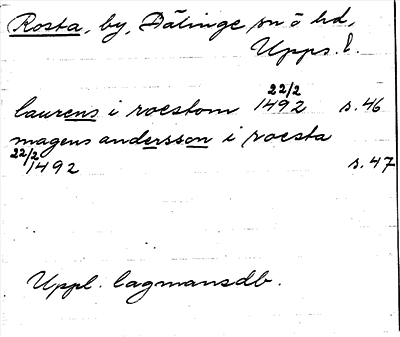 Rosta, by, Dälinge sn ö hd,
Upps. l.
22/2
laurens i roestom 1492 s. 46
magens andersson i roesta
22/2 1492 s. 47
Uppl. lagmansdb.